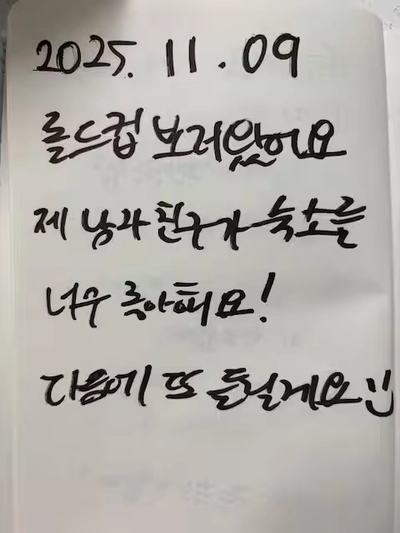 2025. 11. 09
롤드컵 보러왔어요
제 남자친구가 숙소를
너무 좋아해요!
다음에 또 들릴게요 :)